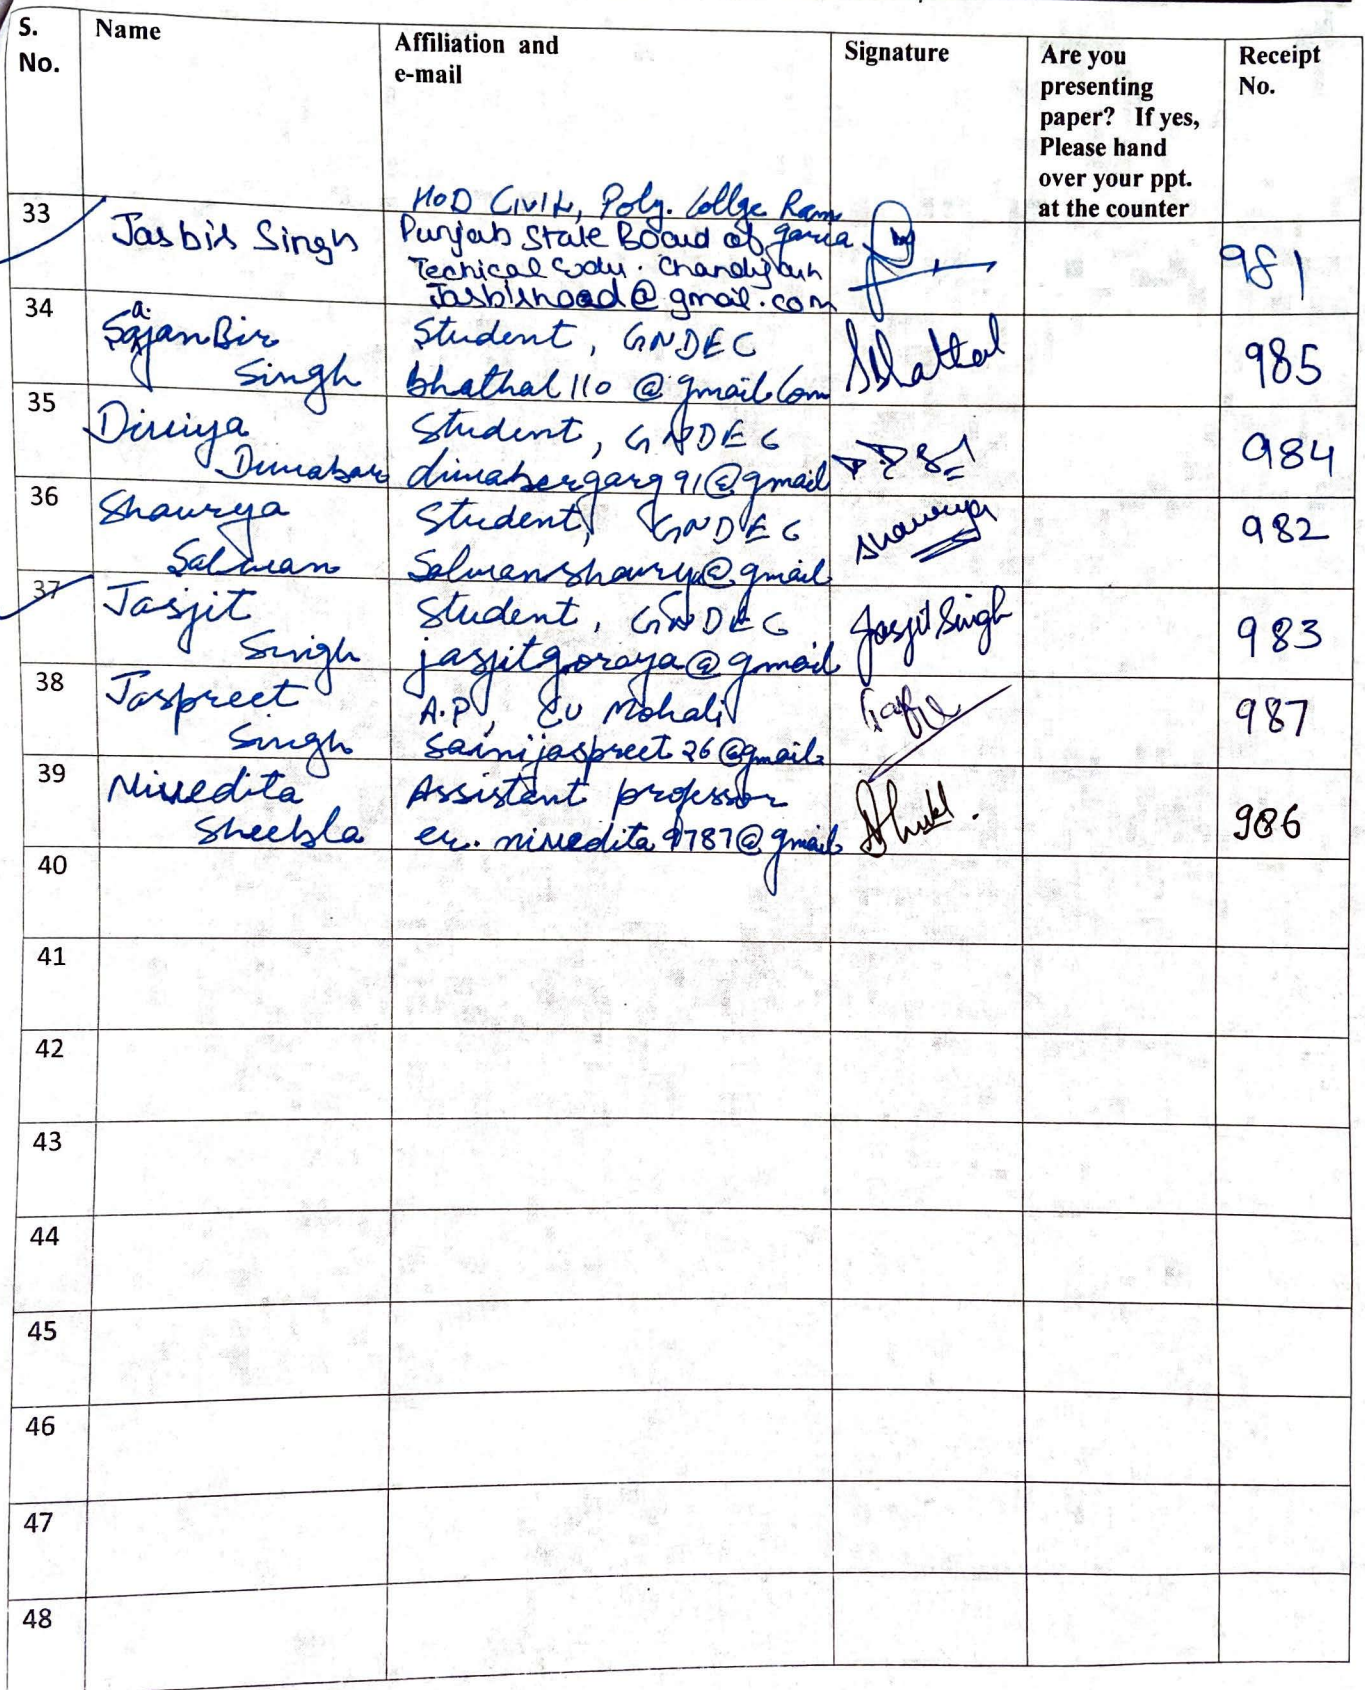 S. No. Name Affiliation and e-mail Signature Are you presenting paper? If yes, Please hand over your ppt. at the counter Receipt No.
33 Jasbir Singh HOD Civil, Poly. Collge Ram
garia
Punjab State Board of
Techical Edu. Chandigarh
981
34 SajanBir Singh Student, GNDEC
bhathal110@gmail.com
985
35 Student, GNDEC
984
36 Shaurya Salwan Student, GNDEC
Salwanshaurya@gmail
Shaurya
982
37 Jasjit Singh Student, GNDEC
jasjitgoraya@gmail
Jasjit Singh
983
38 Jaspreet Singh A.P, CU Mohali
sainijaspreet26@gmail.
987
39 Nivedita Assistant professor
er.nivedita9787@gmail
986
40
41
42
43
44
45
46
47
48